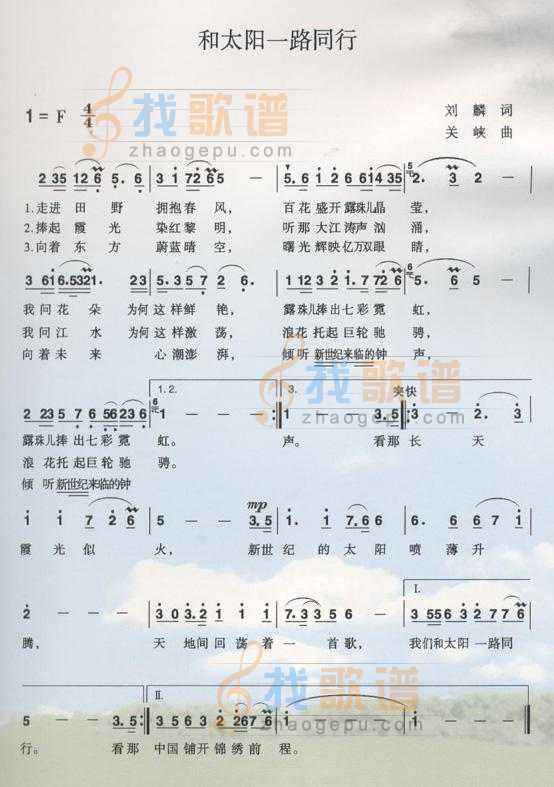 和太阳一路同行
找歌谱
zhaogepu.com
1= F 4/4
刘麟 词
关峡 曲
2 35 12 6 5. 6 | 3 1 72 6 5 — | 5. 6 1 2 6 61 4 35 | 2. 3 2 — |
1.走进 田 野 拥抱 春 风， 百 花 盛 开 露珠儿晶 莹，
2.捧起 霞 光 染红 黎 明， 听 那 大 江 涛声 汹 涌，
3.向着 东 方 蔚蓝 晴 空， 曙 光 辉 映 亿万双眼 睛，
我 问 花 朵 为何 这 样 鲜 艳， 露珠儿捧 出 七 彩 霓 虹，
我 问 江 水 为何 这 样 激 荡， 浪花 托 起 巨 轮 驰 骋，
向 着 未 来 心 潮 澎 湃， 倾听 新世纪来临的钟 声，
找歌谱
zhaogepu.com
1. 2.
3.
突快
露珠儿捧 出 七 彩 霓 虹。 声。 看那 长 天
浪 花 托 起 巨 轮 驰 骋。
倾 听 新世纪来临的钟
mp
1 1 7 2 6 | 5 — — 3. 5 | 1. 1 7. 6 7 6 | 6. 6 6 7 1 |
霞 光 似 火， 新世 纪 的 太 阳 喷 薄 升
I.
2 — — — | 3 0 3. 2 1 1 1 | 7. 3 3 5 6 — | 3 55 6 3 2 7 7 6 |
腾， 天 地间 回 荡 着 一 首 歌， 我们和太阳 一路同
找歌谱
zhaogepu.com
II.
5 — — 3. 5 | 3 5 6 3 2 267 6 | 1 — — — | 1 — — — |
行。 看那 中国 铺开 锦 绣 前 程。